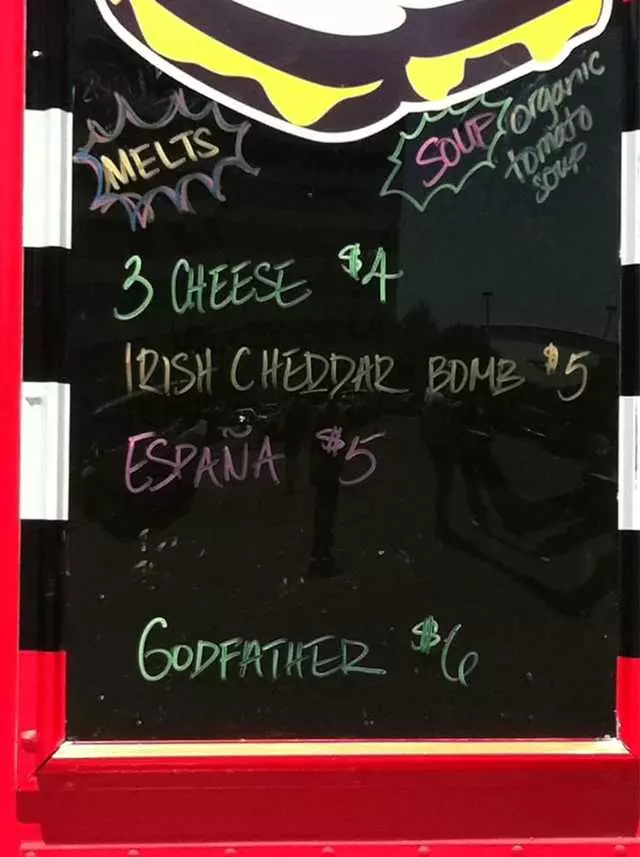 MELTS
SOUP
organic
tomato
soup
3 CHEESE $4
IRISH CHEDDAR BOMB $5
ESPAÑA $5
GODFATHER $6